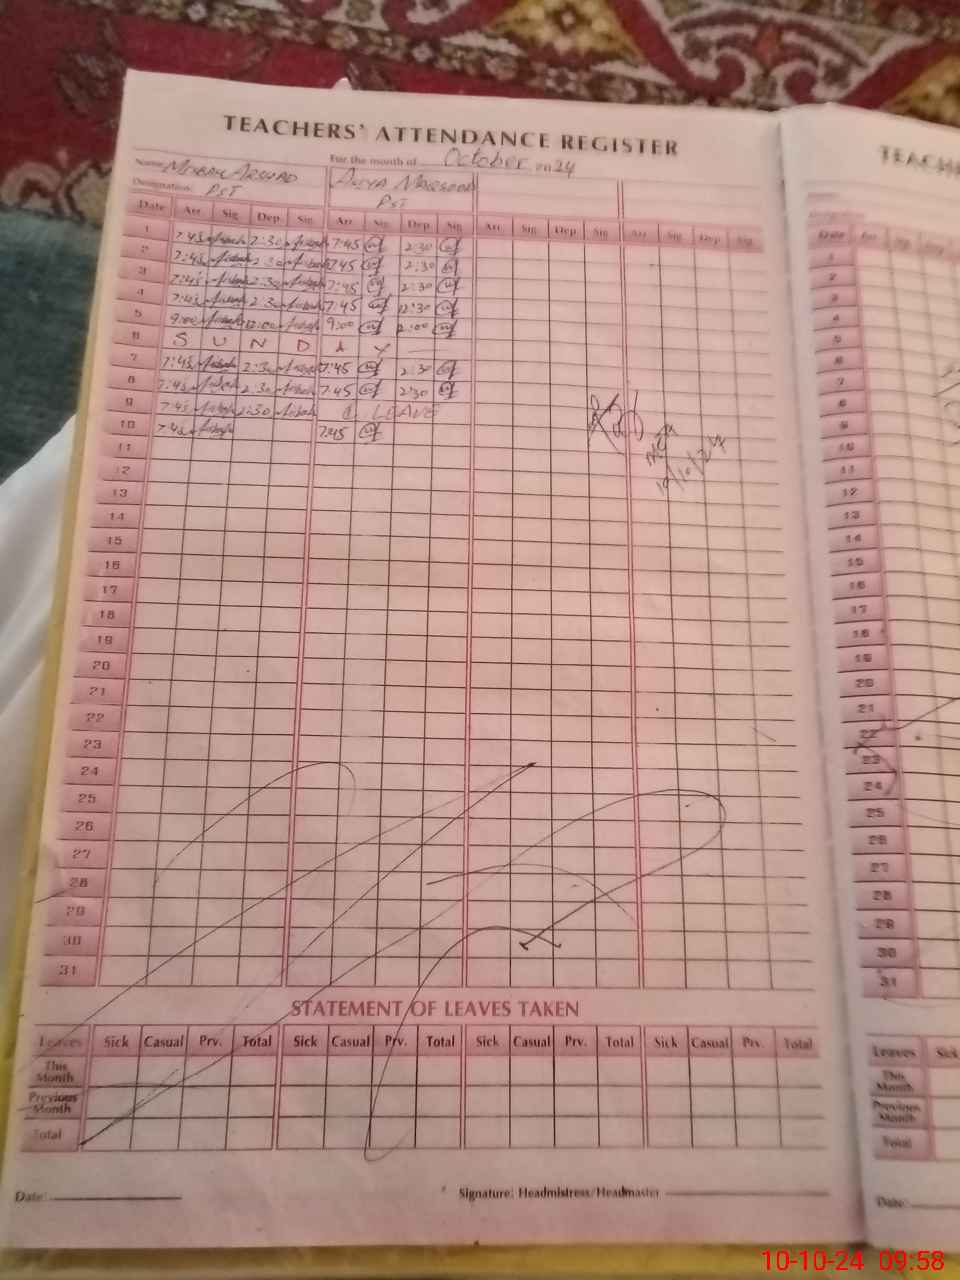 TEACHERS' ATTENDANCE REGISTER
For the month of October 2024
Name Arshad
Designation: PST
Maqsood
PST
Date Arr Sig Dep Sig Arr Sig Dep Sig Arr Sig Dep Sig Arr Sig Dep Sig
1 7:45 2:30 7:45 2:30
2 7:45 2:30 7:45 2:30
3 7:45 2:30 7:45 2:30
4 7:45 2:30 7:45 12:30
5 9:00 12:00 9:00 12:00
6 S U N D A Y
7 7:45 2:30 7:45 2:30
8 7:45 2:30 7:45 2:30
9 7:45 2:30 C. LEAVE
10 7:45 7:45
11
12
13
14
15
16
17
18
19
20
21
22
23
24
25
26
27
28
29
30
31
10/10/24
STATEMENT OF LEAVES TAKEN
Leaves Sick Casual Prv. Total Sick Casual Prv. Total Sick Casual Prv. Total Sick Casual Prv. Total
This Month
Previous Month
Total
Date:
Signature: Headmistress/Headmaster
Date
1
2
3
4
5
6
7
8
9
10
11
12
13
14
15
16
17
18
19
20
21
22
23
24
25
26
27
28
29
30
31
Leaves Sick
This Month
Previous Month
Total
Date:
10-10-24 09:58